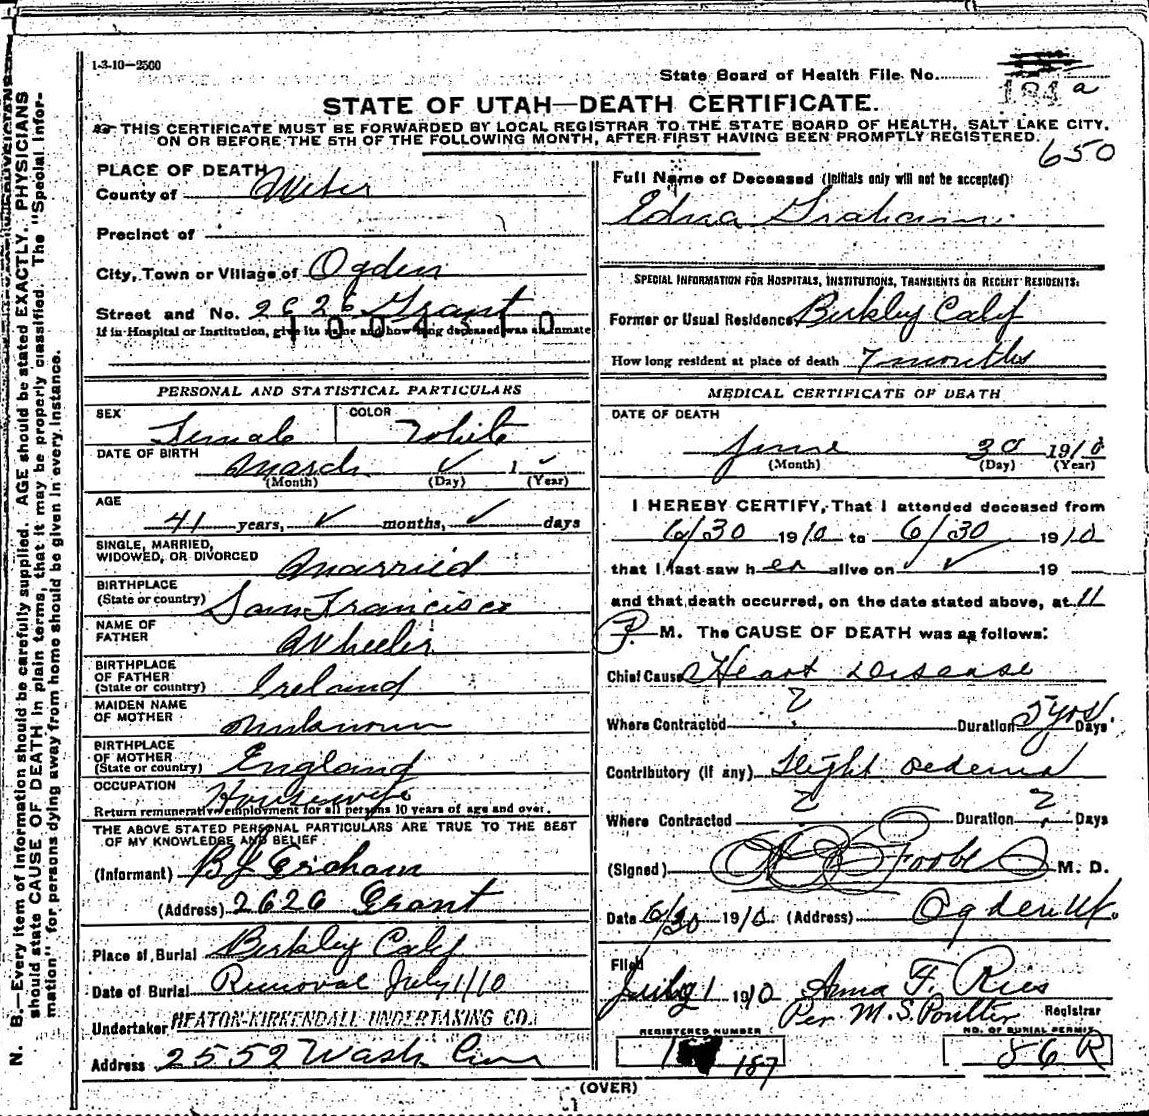 1-3-10—2500
State Board of Health File No.
184 a
STATE OF UTAH—DEATH CERTIFICATE.
THIS CERTIFICATE MUST BE FORWARDED BY LOCAL REGISTRAR TO THE STATE BOARD OF HEALTH, SALT LAKE CITY,
ON OR BEFORE THE 5TH OF THE FOLLOWING MONTH, AFTER FIRST HAVING BEEN PROMPTLY REGISTERED.
650
PLACE OF DEATH
County of Weber
Precinct of
City, Town or Village of Ogden
Street and No. 2626 Grant
If in Hospital or Institution, give its name and how long deceased was an inmate
PERSONAL AND STATISTICAL PARTICULARS
SEX Female COLOR White
DATE OF BIRTH March ✓ 1 ✓
(Month) (Day) (Year)
AGE
41 years, ✓ months, ✓ days
SINGLE, MARRIED,
WIDOWED, OR DIVORCED Married
BIRTHPLACE
(State or country) San Francisco
NAME OF
FATHER Wheeler
BIRTHPLACE
OF FATHER
(State or country) Ireland
MAIDEN NAME
OF MOTHER Unknown
BIRTHPLACE
OF MOTHER
(State or country) England
OCCUPATION Housewife
Return remunerative employment for all persons 10 years of age and over.
THE ABOVE STATED PERSONAL PARTICULARS ARE TRUE TO THE BEST
OF MY KNOWLEDGE AND BELIEF
(Informant) B J Graham
(Address) 2626 Grant
Place of Burial Berkley Calif
Date of Burial Removal July 1/10
Undertaker HEATON-KIRKENDALL UNDERTAKING CO.
Address 2552 Wash
Full Name of Deceased (Initials only will not be accepted)
Edna Graham
SPECIAL INFORMATION FOR HOSPITALS, INSTITUTIONS, TRANSIENTS OR RECENT RESIDENTS:
Former or Usual Residence Birkley Calif
How long resident at place of death 7 months
MEDICAL CERTIFICATE OF DEATH
DATE OF DEATH
June 30 1910
(Month) (Day) (Year)
I HEREBY CERTIFY, That I attended deceased from
6/30 1910 to 6/30 1910
that I last saw her alive on ✓ ✓ 19
and that death occurred, on the date stated above, at 11
P. M. The CAUSE OF DEATH was as follows:
Chief Cause Heart Disease
Where Contracted ? Duration yrs Days
Contributory (if any) oedema
Where Contracted ? Duration ? Days
(Signed) M. D.
Date 6/30 1910 (Address) Ogden Ut.
Filed
July 1 1910 Anna F. Ries
Per M. S. Poulter Registrar
REGISTERED NUMBER
187
NO. OF BURIAL PERMIT
86 R
(OVER)
N. B.—Every item of information should be carefully supplied. AGE should be stated EXACTLY. PHYSICIANS
should state CAUSE OF DEATH in plain terms, that it may be properly classified. The "Special Infor-
mation" for persons dying away from home should be given in every instance.